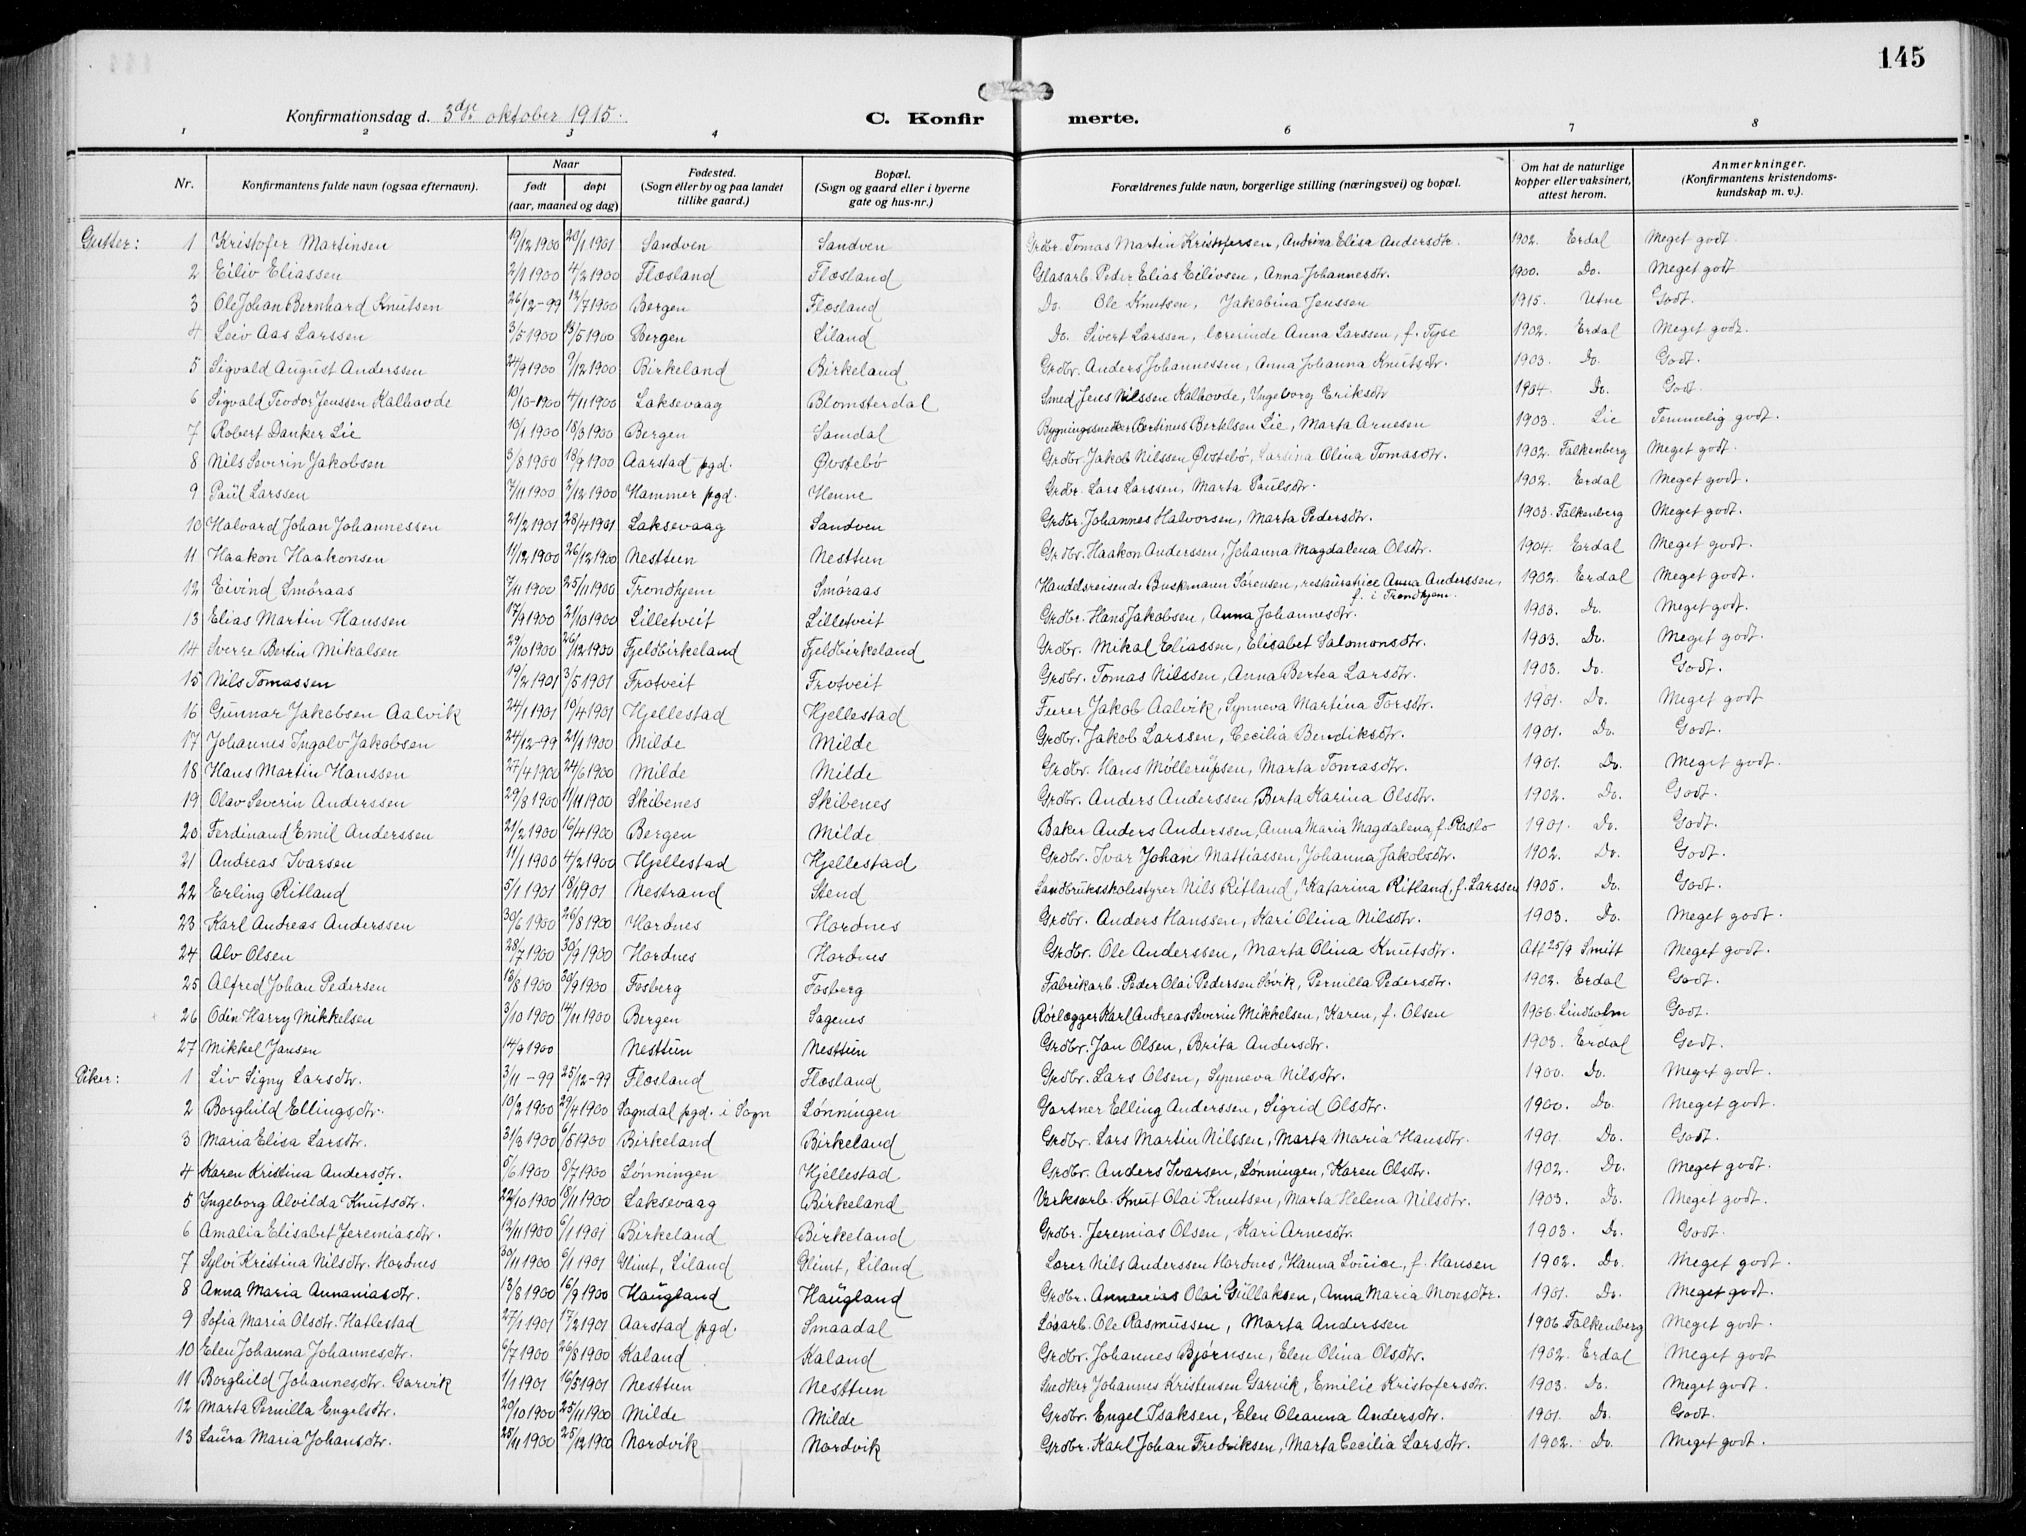 145
Konfirmationsdag d. 3dje oktober 1915. C. Konfirmerte.
1 2 3 4 5 6 7 8
Nr. | Konfirmantens fulde navn (ogsaa efternavn). | Naar født døpt (aar, maaned og dag) | Fødested. (Sogn eller by og paa landet tillike gaard.) | Bopæl. (Sogn og gaard eller i byerne gate og hus-nr.) | Forældrenes fulde navn, borgerlige stilling (næringsvei) og bopæl. | Om hat de naturlige kopper eller vaksinert, attest herom. | Anmerkninger. (Konfirmantens kristendomskundskap m. v.).
Gutter: 1 Kristofer Martinsen 19/12 1900 20/1 1901 Sandven Sandven Grdbr. Tomas Martin Kristofersen, Andrina Elisa Andersdtr. 1902. Erdal Meget godt.
2 Eiliv Eliassen 2/1 1900 4/2 1900 Flæsland Flæsland Glasarb. Peder Elias Eilivsen, Anna Johannesdtr. 1900. Do. Meget godt
3 Ole Johan Bernhard Knutsen 26/12-99 12/7 1900 Bergen Flæsland Do. Ole Knutsen, Jakobina Jenssen 1915. Utne Godt.
4 Leiv Aas Larssen 3/5 1900 13/5 1900 Bergen Liland Do. Sivert Larssen, lærerinde Anna Larssen, f. Tyse 1902. Erdal Meget godt.
5 Sigvald August Anderssen 24/9 1900 9/12 1900 Birkeland Birkeland Grdbr. Anders Johannessen, Anna Johanna Knutsdtr. 1903. Do. Godt.
6 Sigvald Teodor Jenssen Kalhovde 10/10-1900 4/11 1900 Laksevaag Blomsterdal Smed Jens Nilssen Kalhovde, Ingeborg Eriksdtr 1904. Do. Godt.
7 Robert Danker Lie 10/1 1900 18/3 1900 Bergen Samdal Bygningssnedker Bertinus Bertelsen Lie, Marta Arnesen 1903. Lie Temmelig godt.
8 Nils Severin Jakobsen 3/8 1900 18/9 1900 Aarstad pgd. Øvstebø Grdbr. Jakob Nilssen Øvstebø, Larsina Olina Tomasdtr. 1902. Falkenberg Meget godt.
9 Paul Larssen 7/11 1900 2/12 1900 Hammer pgd. Henne Grdbr. Lars Larssen, Marta Paulsdtr. 1902. Erdal Meget godt.
10 Halvard Johan Johannessen 21/2 1901 28/4 1901 Laksevaag Sandven Grdbr. Johannes Halvorsen, Marta Pedersdtr. 1903. Falkenberg Meget godt.
11 Haakon Haakonsen 11/12 1900 26/12 1900 Nesttun Nesttun Grdbr. Haakon Anderssen, Johanna Magdalena Olsdtr. 1904. Erdal Meget godt.
12 Eivind Smøraas 7/11 1900 25/11 1900 Trondhjem Smøraas Handelsreisende Buskmann Sørensen, restauratrice Anna Anderssen, f. i Trondhjem. 1902. Erdal Meget godt.
13 Elias Martin Hanssen 17/9 1900 21/10 1900 Lilletveit Lilletveit Grdbr. Hans Jakobsen, Anna Johannesdtr. 1903. Do. Meget godt.
14 Sverre Bertin Mikalsen 29/10 1900 26/12 1900 Fjeldbirkeland Fjeldbirkeland Grdbr. Mikal Eliassen, Elisabet Salomonsdtr. 1903. Do. Meget godt
15 Nils Tomassen 19/2 1901 3/5 1901 Frotveit Frotveit Grdbr. Tomas Nilssen, Anna Bertea Larsdtr. 1903. Do. Godt.
16 Gunnar Jakobsen Aalvik 24/1 1901 19/4 1901 Hjellestad Hjellestad Furer Jakob Aalvik, Synneva Martina Torsdtr. 1901. Do. Meget godt
17 Johannes Ingolv Jakobsen 24/12-99 21/1 1900 Milde Milde Grdbr. Jakob Larssen, Cecilia Bendiksdtr. 1901. Do. Godt.
18 Hans Martin Hanssen 27/4 1900 24/6 1900 Milde Milde Grdbr. Hans Møllerupsen, Marta Tomasdtr. 1901. Do. Meget godt.
19 Olav Severin Anderssen 29/8 1900 11/11 1900 Skibenes Skibenes Grdbr. Anders Anderssen, Berta Karina Olsdtr. 1902. Do. Godt.
20 Ferdinand Emil Anderssen 21/2 1900 16/4 1900 Bergen Milde Baker Anders Anderssen, Anna Maria Magdalena, f. Raslo 1901. Do. Godt.
21 Andreas Ivarsen 11/1 1900 4/2 1900 Hjellestad Hjellestad Grdbr. Ivar Johan Mattiassen, Johanna Jakobsdtr. 1902. Do. Godt.
22 Erling Ritland 5/1 1901 18/1 1901 Nestrand Stend Landbruksskolestyrer Nils Ritland, Katarina Ritland, f. Larssen 1905. Do. Godt.
23 Karl Andreas Anderssen 30/6 1900 26/8 1900 Hordnes Hordnes Grdbr. Anders Hanssen, Kari Olina Nilsdtr. 1903. Do. Meget godt.
24 Alv Olsen 28/7 1900 30/9 1900 Hordnes Hordnes Grdbr. Ole Anderssen, Marta Olina Knutsdtr. Att 25/9 Smitt Meget godt.
25 Alfred Johan Pedersen 13/8 1900 30/9 1900 Fosberg Fosberg Fabrikarb. Peder Olai Pedersen Søvik, Pernilla Pedersdtr. 1902. Erdal Godt.
26 Odin Harry Mikkelsen 3/10 1900 14/11 1900 Bergen Sagenes Rørlægger Karl Andreas Severin Mikkelsen, Karen, f. Olsen 1906. Lindholm Godt.
27 Mikkel Jansen 14/9 1900 Nesttun Nesttun Grdbr. Jan Olsen, Brita Andersdtr. 1903. Erdal Godt.
Piker: 1 Liv Signy Larsdtr. 3/11-99 25/12-99 Flæsland Flæsland Grdbr. Lars Olsen, Synneva Nilsdtr. 1900. Do. Meget godt.
2 Borghild Ellingsdtr. 10/2 1900 29/4 1900 Sogndal pgd. i Sogn Lønningen Gartner Elling Anderssen, Sigrid Olsdtr. 1900. Do. Meget godt.
3 Maria Elisa Larsdtr. 31/3 1900 6/5 1900 Birkeland Birkeland Grdbr. Lars Martin Nilssen, Marta Maria Hansdtr. 1901. Do. Godt.
4 Karen Kristina Andersdtr. 5/6 1900 8/7 1900 Lønningen Hjellestad Grdbr. Anders Ivarsen, Lønningen, Karen Olsdtr. 1902. Do. Meget godt.
5 Ingeborg Alvilda Knutsdtr. 22/10 1900 18/11 1900 Laksevaag Birkeland Verksarb. Knut Olai Knutsen, Marta Helena Nilsdtr. 1903. Do. Meget godt.
6 Amalia Elisabet Jeremiasdtr. 12/11 1900 6/1 1901 Birkeland Birkeland Grdbr. Jeremias Olsen, Kari Arnesdtr. 1903. Do. Godt.
7 Sylvi Kristina Nilsdtr. Hordnes 30/11 1900 6/1 1901 Glimt, Liland Glimt, Liland Lærer Nils Anderssen Hordnes, Hanna Louise, f. Hansen 1902. Do. Meget godt.
8 Anna Maria Annaniasdtr. 13/8 1900 16/9 1900 Haugland Haugland Grdbr. Annanias Olai Gullaksen, Anna Maria Monsdtr. 1901. Do. Meget godt.
9 Sofia Maria Olsdtr. Hatlestad 27/1 1901 17/2 1901 Aarstad pgd. Smaadal Løsarb. Ole Rasmussen, Marta Anderssen 1906. Falkenberg Meget godt.
10 Elen Johanna Johannesdtr. 6/7 1900 26/8 1900 Kaland Kaland Grdbr. Johannes Bjørnsen, Elen Olina Olsdtr. 1902. Erdal Meget godt
11 Borghild Johannesdtr. Garvik 1/1 1901 16/5 1901 Nesttun Nesttun Snedker Johannes Kristensen Garvik, Emilie Kristofersdtr. 1903. Do. Meget godt.
12 Marta Pernilla Engelsdtr. 20/10 1900 25/11 1900 Milde Milde Grdbr. Engel Isaksen, Elen Oleanna Andersdtr. 1901. Do. Godt.
13 Laura Maria Johansdtr. 25/11 1900 25/12 1900 Nordvik Nordvik Grdbr. Karl Johan Fredriksen, Marta Cecilia Larsdtr. 1902. Do. Meget godt.